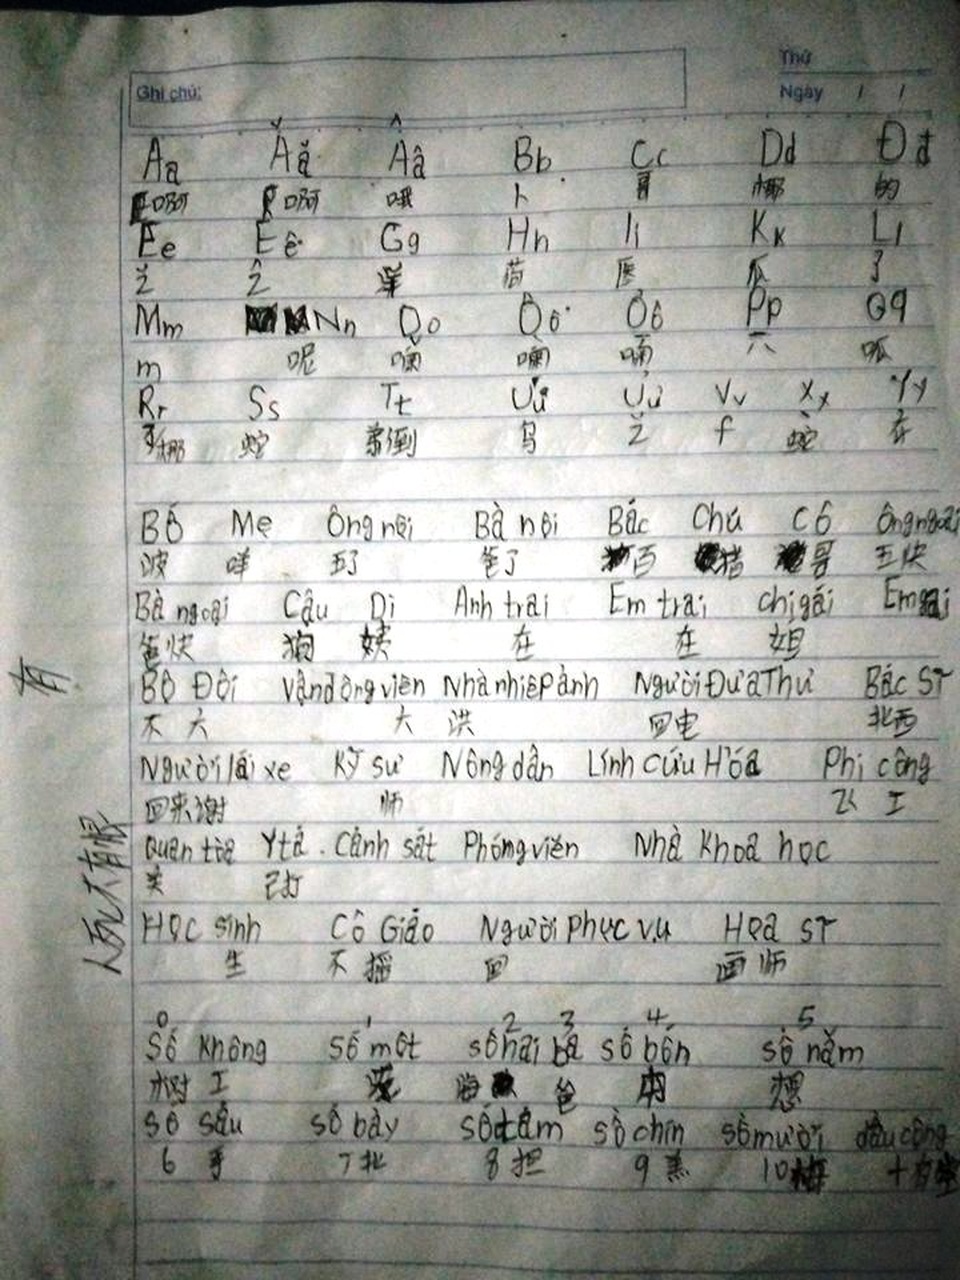 Thứ
Ghi chú:
Ngày / /
Aa Ăă Ââ Bb Cc Dd Đđ
啊 啊 哦 卜 哥 椰 的
Ee Êê Gg Hh Ii Kk Ll
医 了
Mm Nn Oo Ôô Pp Qq
m 呢 六 呱
Rr Ss Tt Vv Xx Yy
蛇 f 蛇 在
Bố Mẹ Ông nội Bà nội Bác Chú Cô Ông ngoại
波 咩 五了 爸了 百 猪 哥 五快
Bà ngoại Cậu Dì Anh trai Em trai chị gái Em gái
爸快 狗 姨 在 在 姐
Bộ Đội vận động viên Nhà nhiếp ảnh Người Đưa Thư Bác Sĩ
不 六 六 洪 回电 北西
有
Người lái xe Kỹ sư Nông dân Lính cứu Hỏa Phi công
回来谢 师 飞 工
Quan tòa Y tá . Cảnh sát Phóng viên Nhà khoa học
关
Học sinh Cô Giáo Người phục vụ Họa sĩ
生 不 摇 回 画师
0 1 2 3 4 5
Số không số một số hai ba số bốn số năm
树 工 海 爸 想
số sáu số bảy số tám số chín số mười dấu cộng
6 手 7 北 8 担 9 10 +